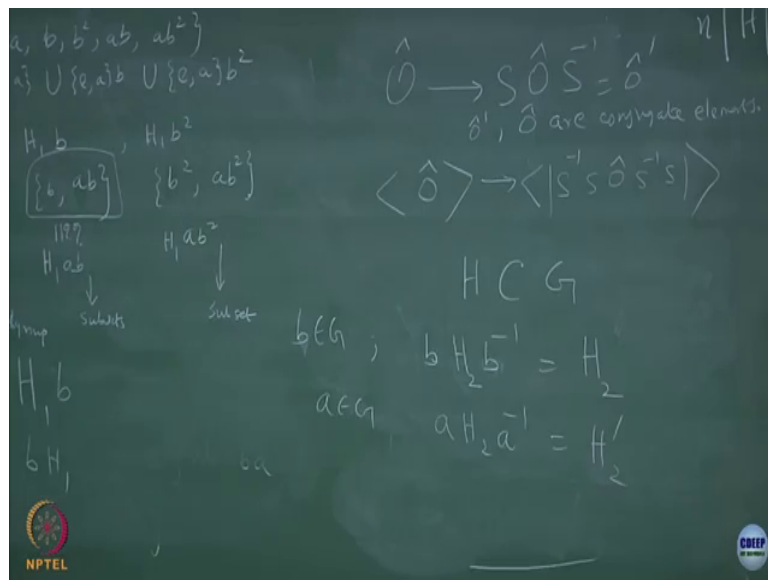 a, b, b², ab, ab²}
a} ∪ {e,a}b ∪ {e,a}b²
H₁b , H₁b²
{b, ab} {b², ab²}
H₁ab H₁ab²
subsets subset
H₁b
bH₁ ba
n | H
Ô → S Ô S⁻¹ = Ô'
Ô', Ô are conjugate elements.
⟨Ô⟩ → ⟨|S⁻¹ S Ô S⁻¹ S|⟩
H ⊂ G
b∈G ; b H₂ b⁻¹ = H₂
a∈G a H₂ a⁻¹ = H₂'
NPTEL
CDEEP